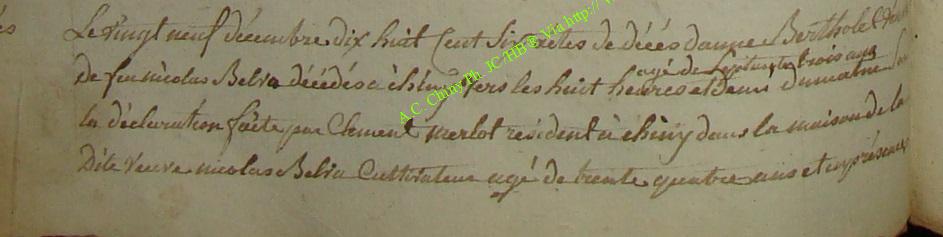 Le vingt neuf décembre dix huit Cent Six actes de décés danne Bertholet
agé de Septante trois ans
de feu nicolas Belva décédés a chiny vers les huit heures et demi dumatin
la déclaration faite par Clement merlot résident à chiny dans la maison de la
Dite veuve nicolas Belva Cultivateur agé de trente quatre ans et en présence
A.C. Chiny Ph. JC-HB ® Via http://